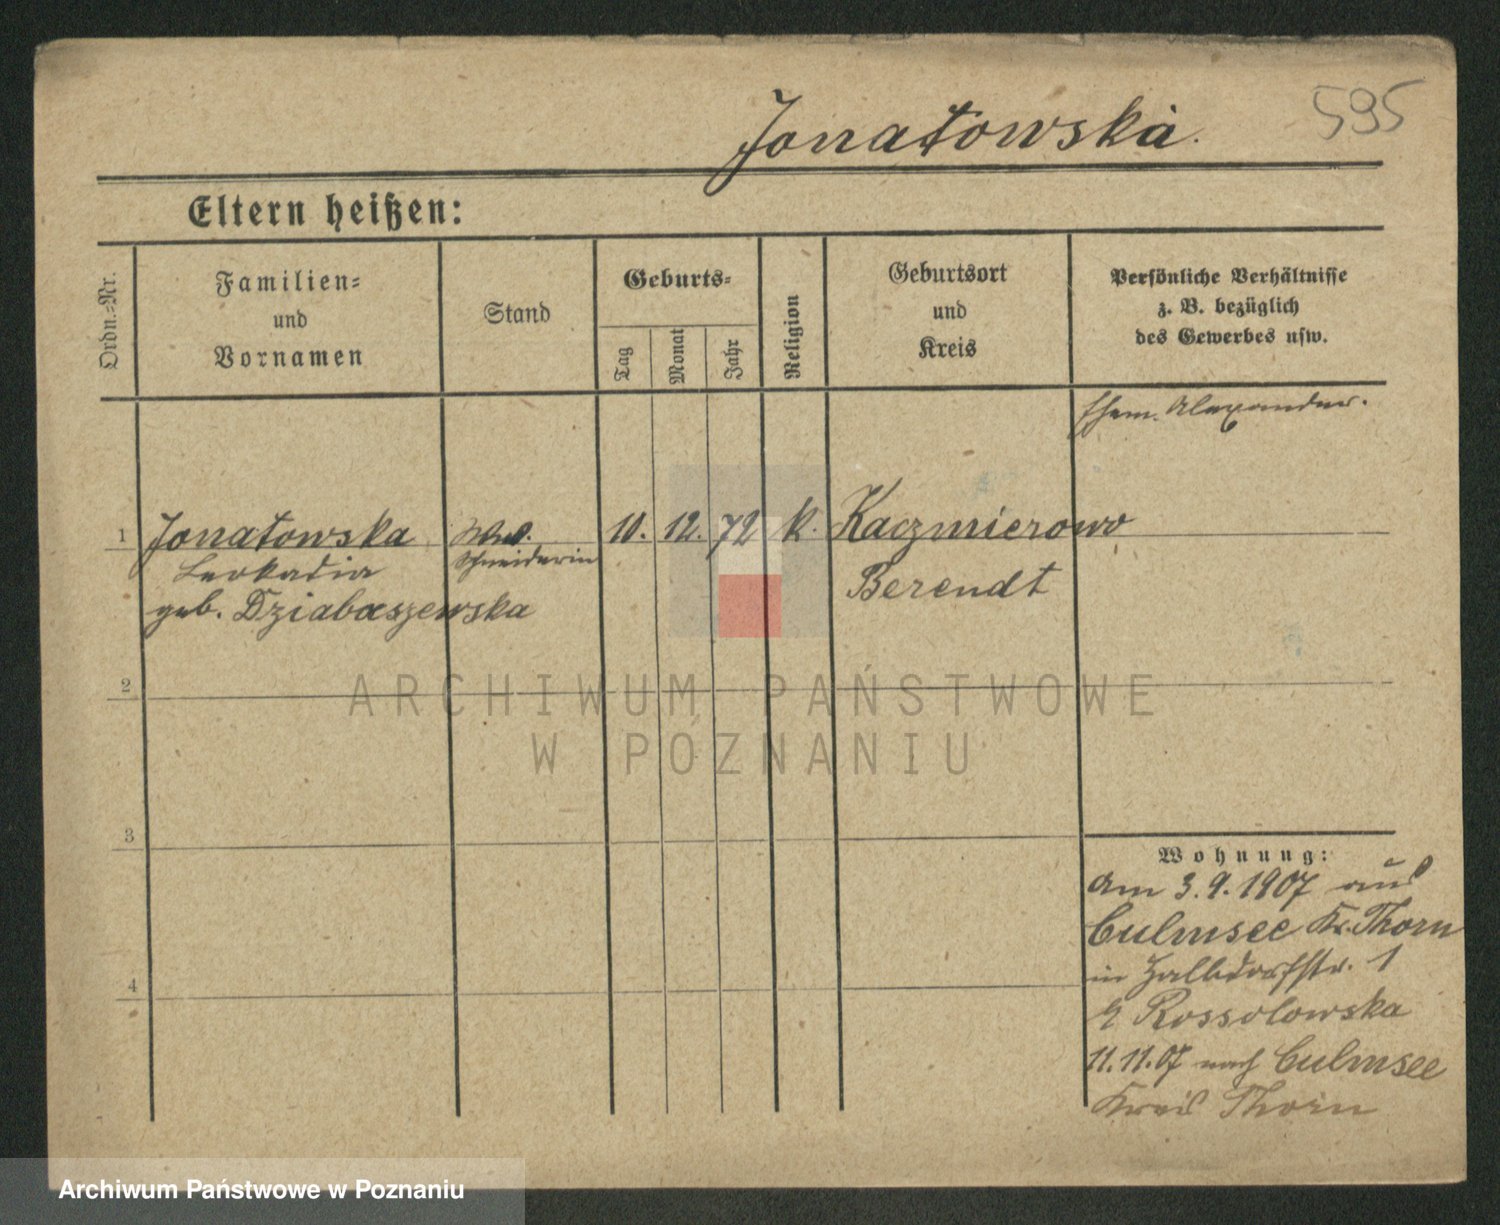 595
Jonatowska.
Eltern heißen:
Ordn.-Nr.
Familien-
und
Vornamen
Stand
Geburts-
Tag
Monat
Jahr
Religion
Geburtsort
und
Kreis
Persönliche Verhältnisse
z. B. bezüglich
des Gewerbes usw.
Ehem. Alexander.
1 Jonatowska 10. 12. 72 k. Kaczmierowo
Schneiderin
Leokadia
Berendt
geb. Dziabaszewska
2
ARCHIWUM PAŃSTWOWE
W POZNANIU
3
Wohnung:
Am 3.9.1907 aus
Culmsee Kr. Thorn
4
in 1
Rossolowska
11.11.07 nach Culmsee
Kreis Thorn
Archiwum Państwowe w Poznaniu